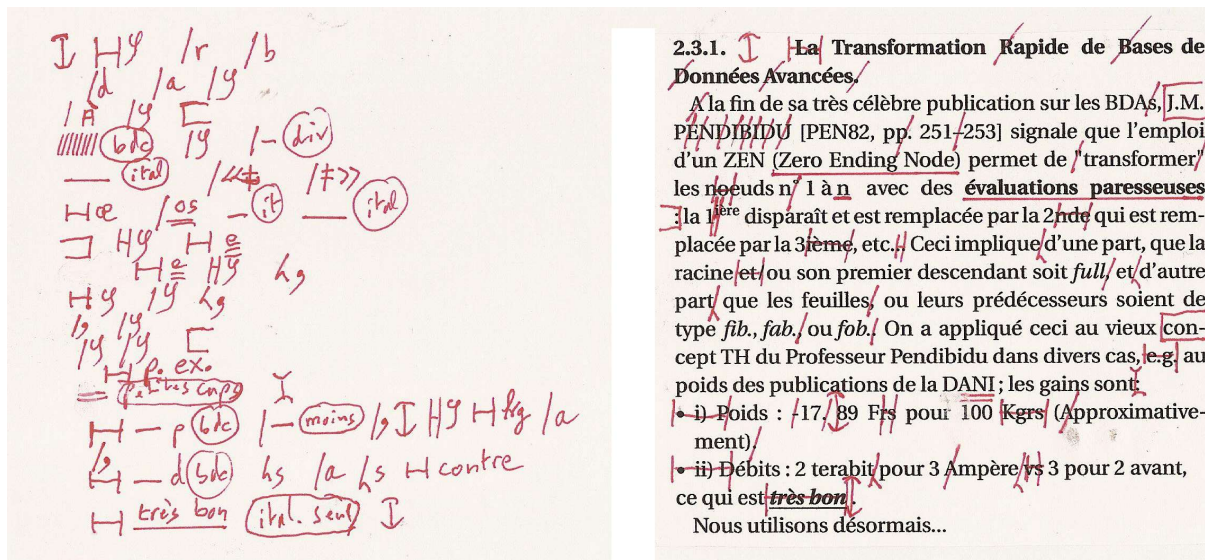 /r /b
/d /a
/À
bdc /– div
ital
/« /» 
œ /os – it — ital
e
e
p. ex.
petites caps
– p bdc /– moins /, kg /a
– d bdc s /a s contre
très bon ital. seul
2.3.1. La Transformation Rapide de Bases de
Données Avancées.
A la fin de sa très célèbre publication sur les BDAs, J.M.
PENDIBIDU [PEN82, pp. 251–253] signale que l'emploi
d'un ZEN (Zero Ending Node) permet de "transformer"
les noeuds n° 1 à n avec des évaluations paresseuses
: la 1ière disparaît et est remplacée par la 2nde qui est rem-
placée par la 3ième, etc... Ceci implique d'une part, que la
racine et/ou son premier descendant soit full, et d'autre
part que les feuilles, ou leurs prédécesseurs soient de
type fib., fab., ou fob.. On a appliqué ceci au vieux con-
cept TH du Professeur Pendibidu dans divers cas, e.g. au
poids des publications de la DANI ; les gains sont:
• i) Poids : -17, 89 Frs pour 100 Kgrs (Approximative-
ment).
• ii) Débits : 2 terabit pour 3 Ampère vs 3 pour 2 avant,
ce qui est très bon .
Nous utilisons désormais...